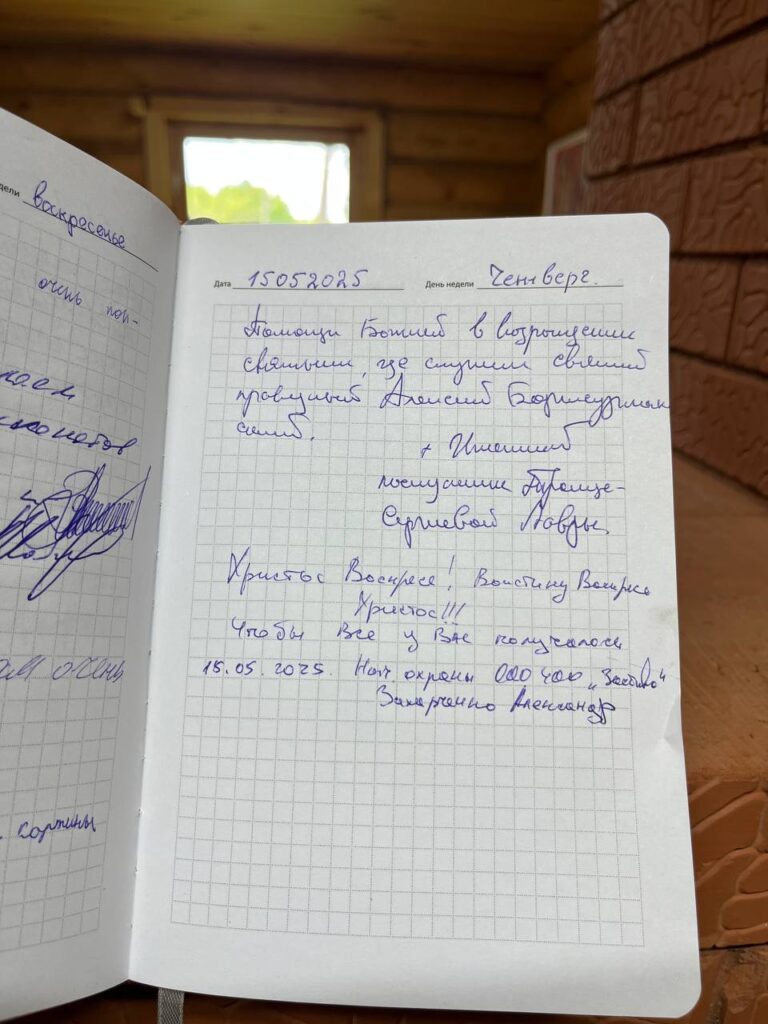 дели воскресенье
очень пон-
каем
очень
картины
Дата 15052025 День недели Четверг.
Помощи Божией в возрождении
святыни, где служил святой
праведный Алексий Бортсурман
ский.
+ Игнатий
послушник Троице-
Сергиевой Лавры.
Христос Воскресе! Воистину Воскресе
Христос!!!
Чтобы все у Вас получалось
15.05.2025. Нач. охраны ООО ЧОО
Захарченко Александр